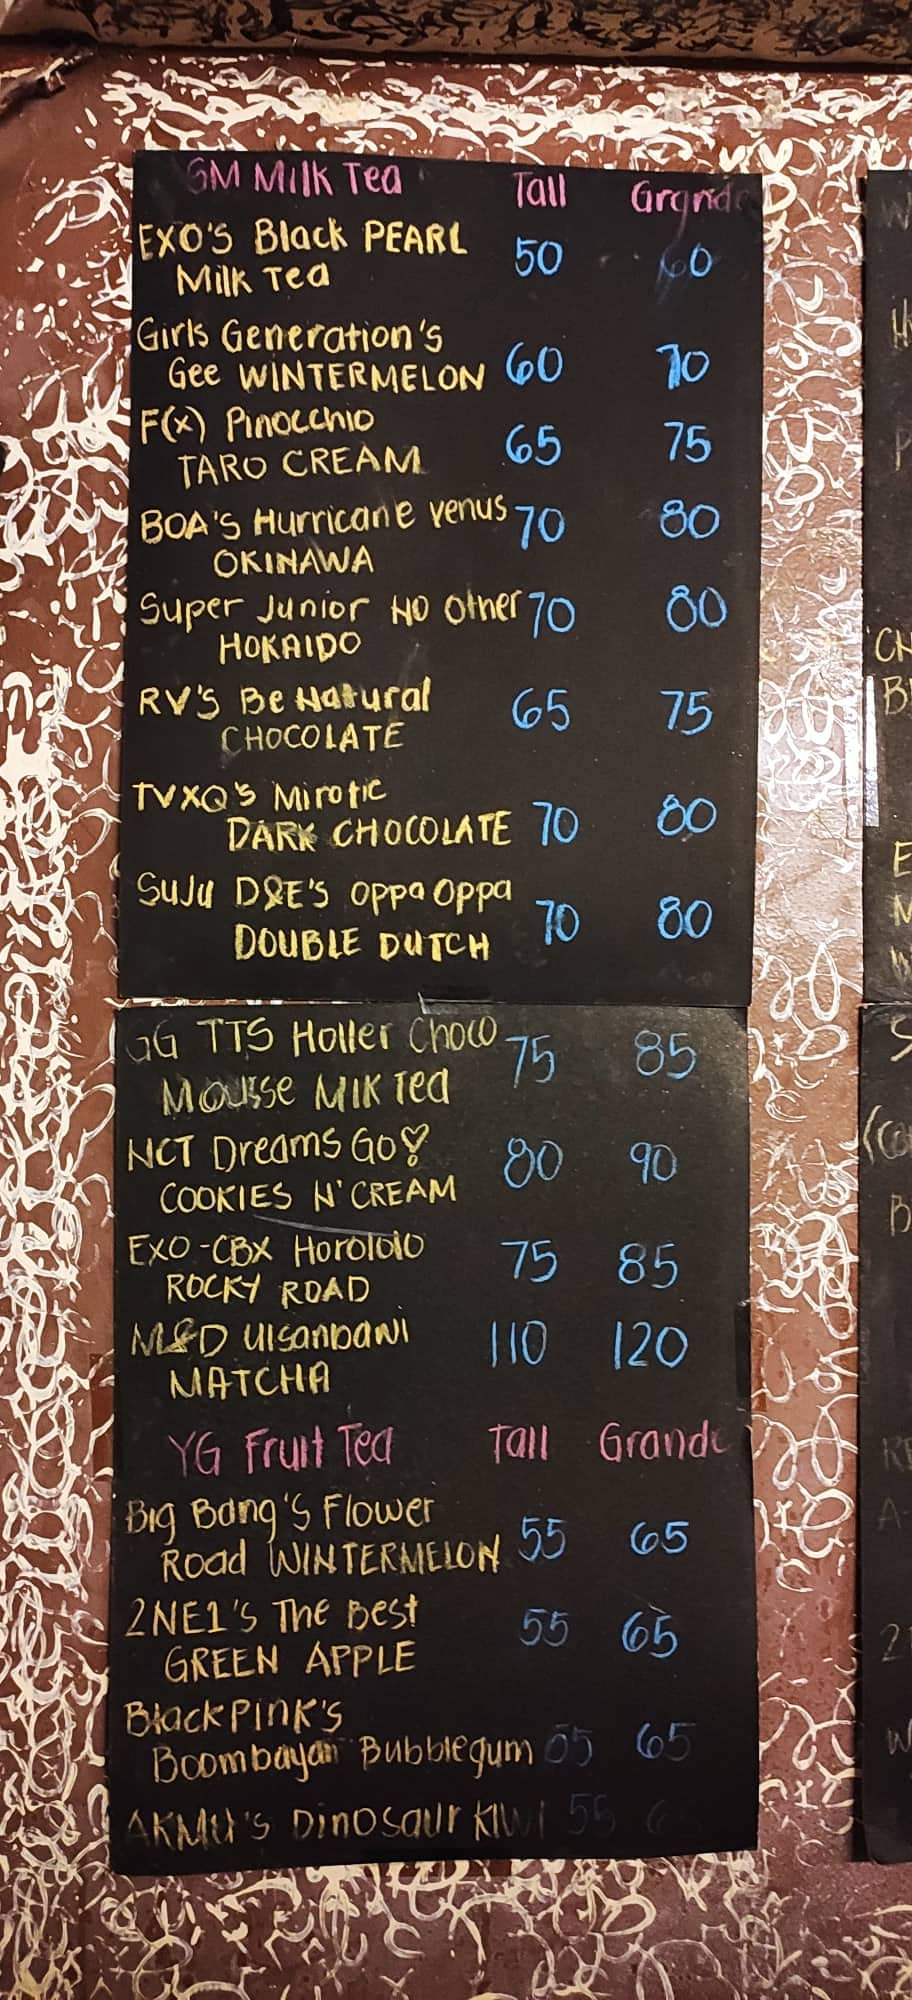 SM Milk Tea Tall Grande
EXO'S Black PEARL
Milk Tea 50 60
Girls Generation's
Gee WINTERMELON 60 70
F(x) Pinocchio
TARO CREAM 65 75
BOA'S Hurricane venus 70 80
OKINAWA
Super Junior NO Other 70 80
HOKAIDO
RV'S Be Natural 65 75
CHOCOLATE
TVXQ'S Mirotic
DARK CHOCOLATE 70 80
SuJu D&E'S Oppa Oppa
DOUBLE DUTCH 70 80
GG TTS Holler Choco 75 85
Mousse Milk Tea
NCT Dreams Go♡ 80 90
COOKIES N' CREAM
EXO-CBX Horololo 75 85
ROCKY ROAD
M&D Ulsanbawi 110 120
MATCHA
YG Fruit Tea Tall Grande
Big Bang'S Flower
Road WINTERMELON 55 65
2NE1'S The Best 55 65
GREEN APPLE
BlackPink's
Boombayah Bubblegum 55 65
AKMU'S Dinosaur KIWI 55